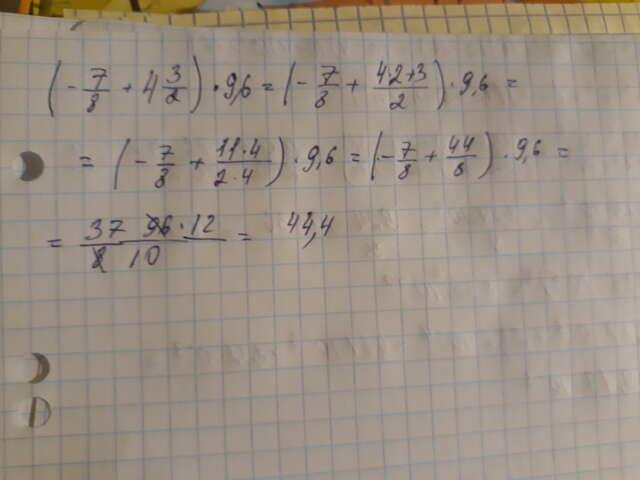 (-7/8 + 4 3/2) · 9,6 = (-7/8 + 4·2+3/2) · 9,6 =
= (-7/8 + 11·4/2·4) · 9,6 = (-7/8 + 44/8) · 9,6 =
= 37 96·12/8 10 = 44,4